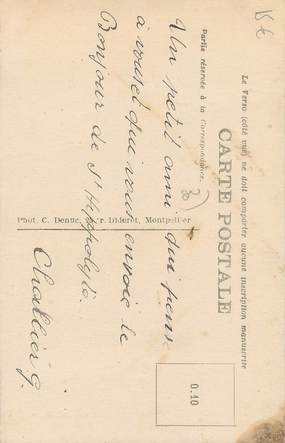 15 €
Le Verso (côté vue) ne doit comporter aucune inscription manuscrite
CARTE POSTALE
Partie réservée à la Correspondance.
Un petit ami qui pense
à vous et qui vous envoie le
Bonjour de St Hippolyte.
Challier G.
Phot. C. Dentic, r. Diderot, Montpellier
0.10